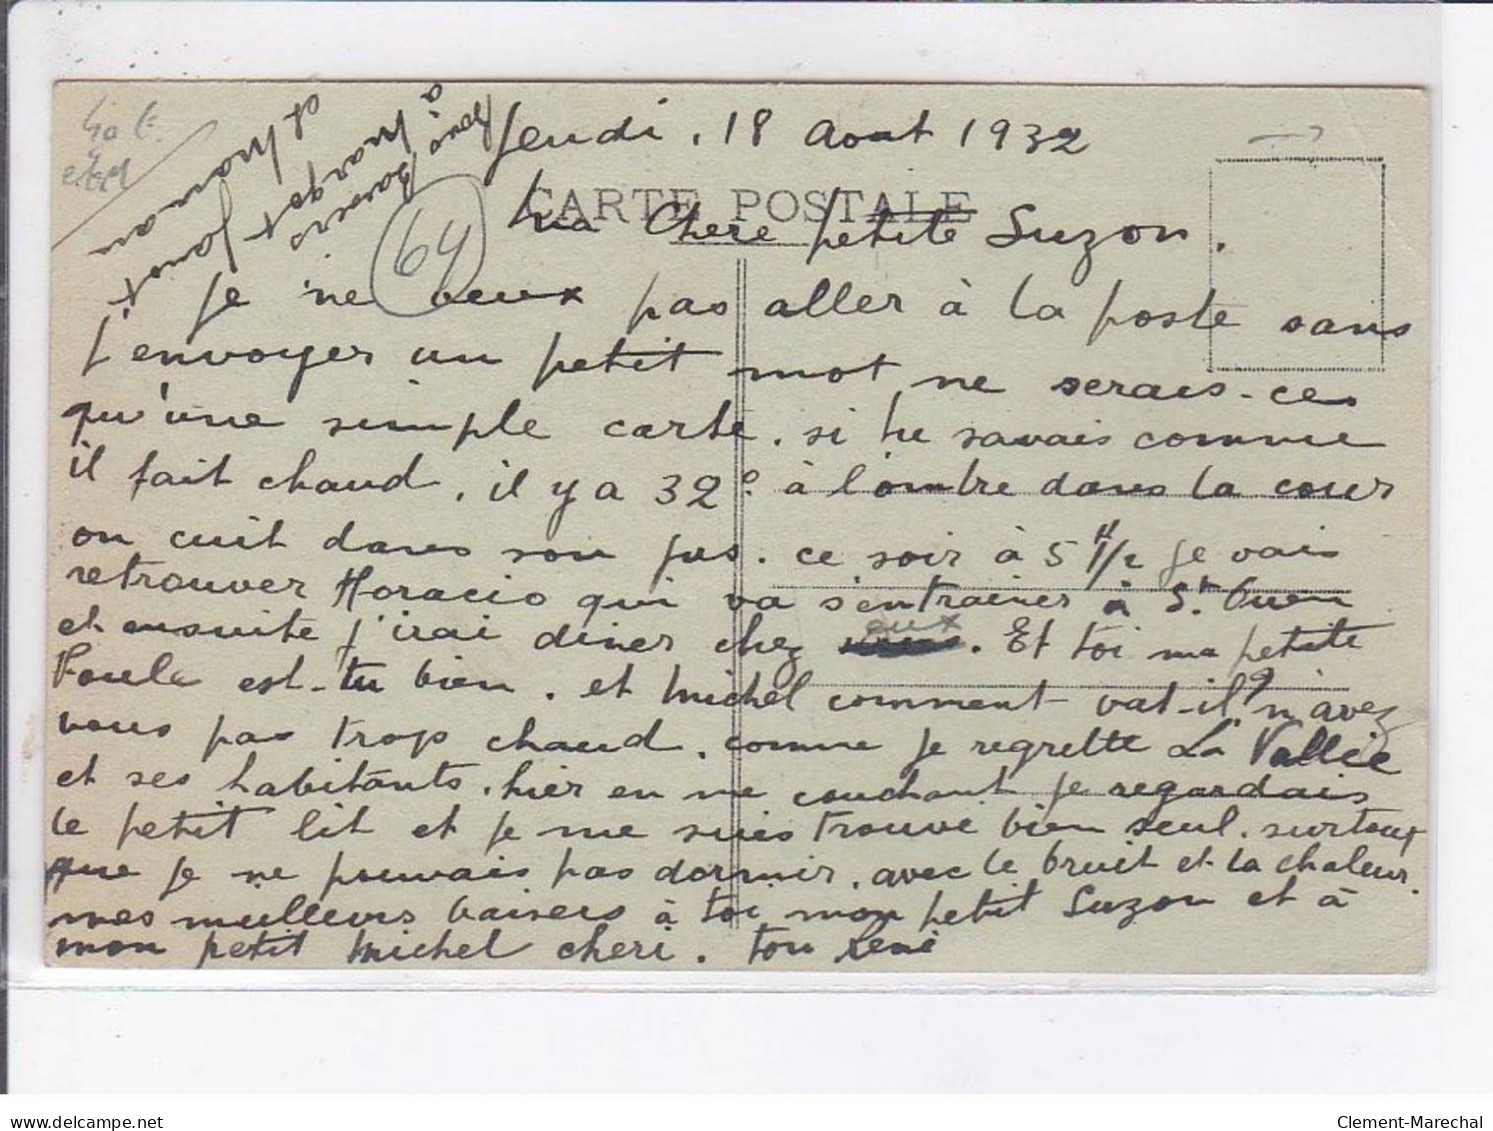 Jeudi, 18 Aout 1932
CARTE POSTALE
Ma Chere petite Suzon.
Je ne veux pas aller à la poste sans
t'envoyer un petit mot ne serais-ces
qu'une simple carte. si tu savais comme
il fait chaud, il y a 32° à l'ombre dans la cour
on cuit dans son jus. ce soir à 5 H 1/2 je vais
retrouver Horacio qui va s'entrainer à St Ouen
et ensuite j'irai diner chez eux. Et toi ma petite
Poule est-tu bien. et Michel comment vat-il? n'avez
vous pas trop chaud. comme je regrette La Vallée
et ses habitants. hier en me couchant je regardais
le petit lit et je me suis trouvé bien seul. surtout
que je ne pouvais pas dormir. avec le bruit et la chaleur.
mes meilleurs baisers à toi mon petit Suzon et à
mon petit Michel cheri. ton René
Bons Baisers
à Margot
et Maman
64
Clement-Marechal
www.delcampe.net